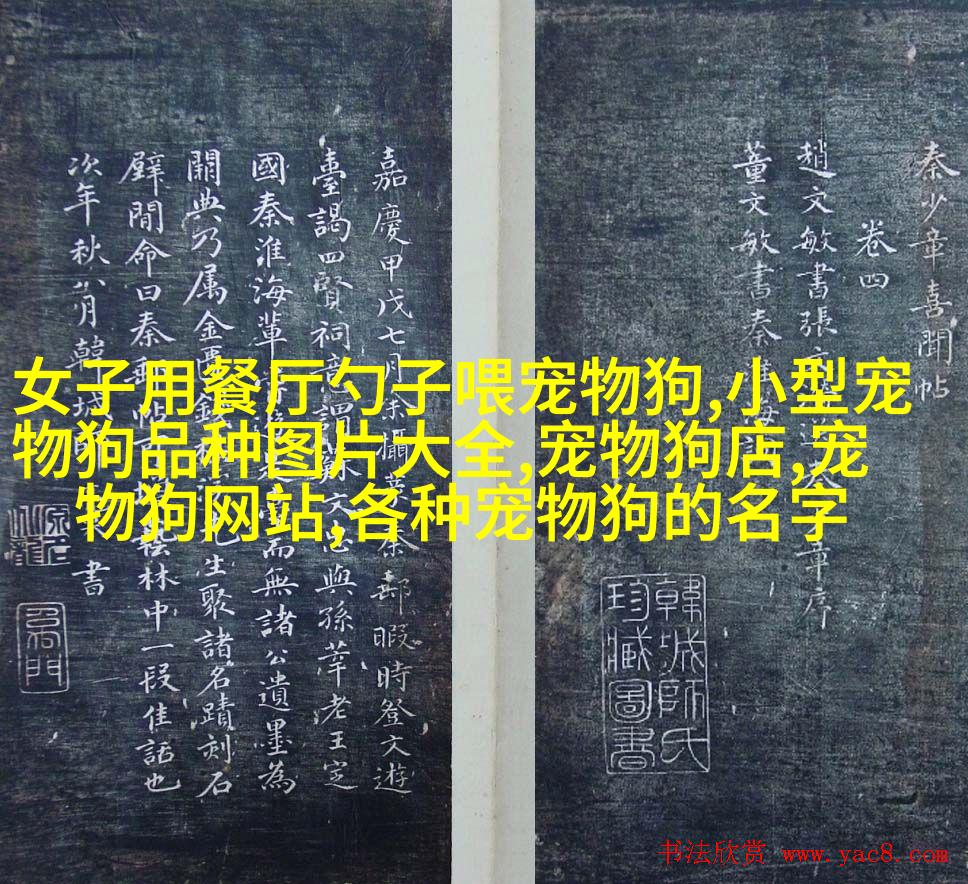 女子用餐厅勺子喂宠物狗,小型宠
物狗品种图片大全,宠物狗店,宠
物狗网站,各种宠物狗的名字
秦少章喜聞帖
卷四
趙文敏書張
董文敏書秦
章序
韓城師氏
珍臧圖書
嘉慶甲戊七月
攝
郵暇時登文遊
臺謁四賢祠
與孫莘老王定
國秦淮海輩
而無諸公遺墨為
闕典乃属金匱錢
生聚諸名蹟刻石
壁間命曰秦郵帖
林中一段佳話也
次年秋八月韓城師
書
书法欣赏 www.yac8.com